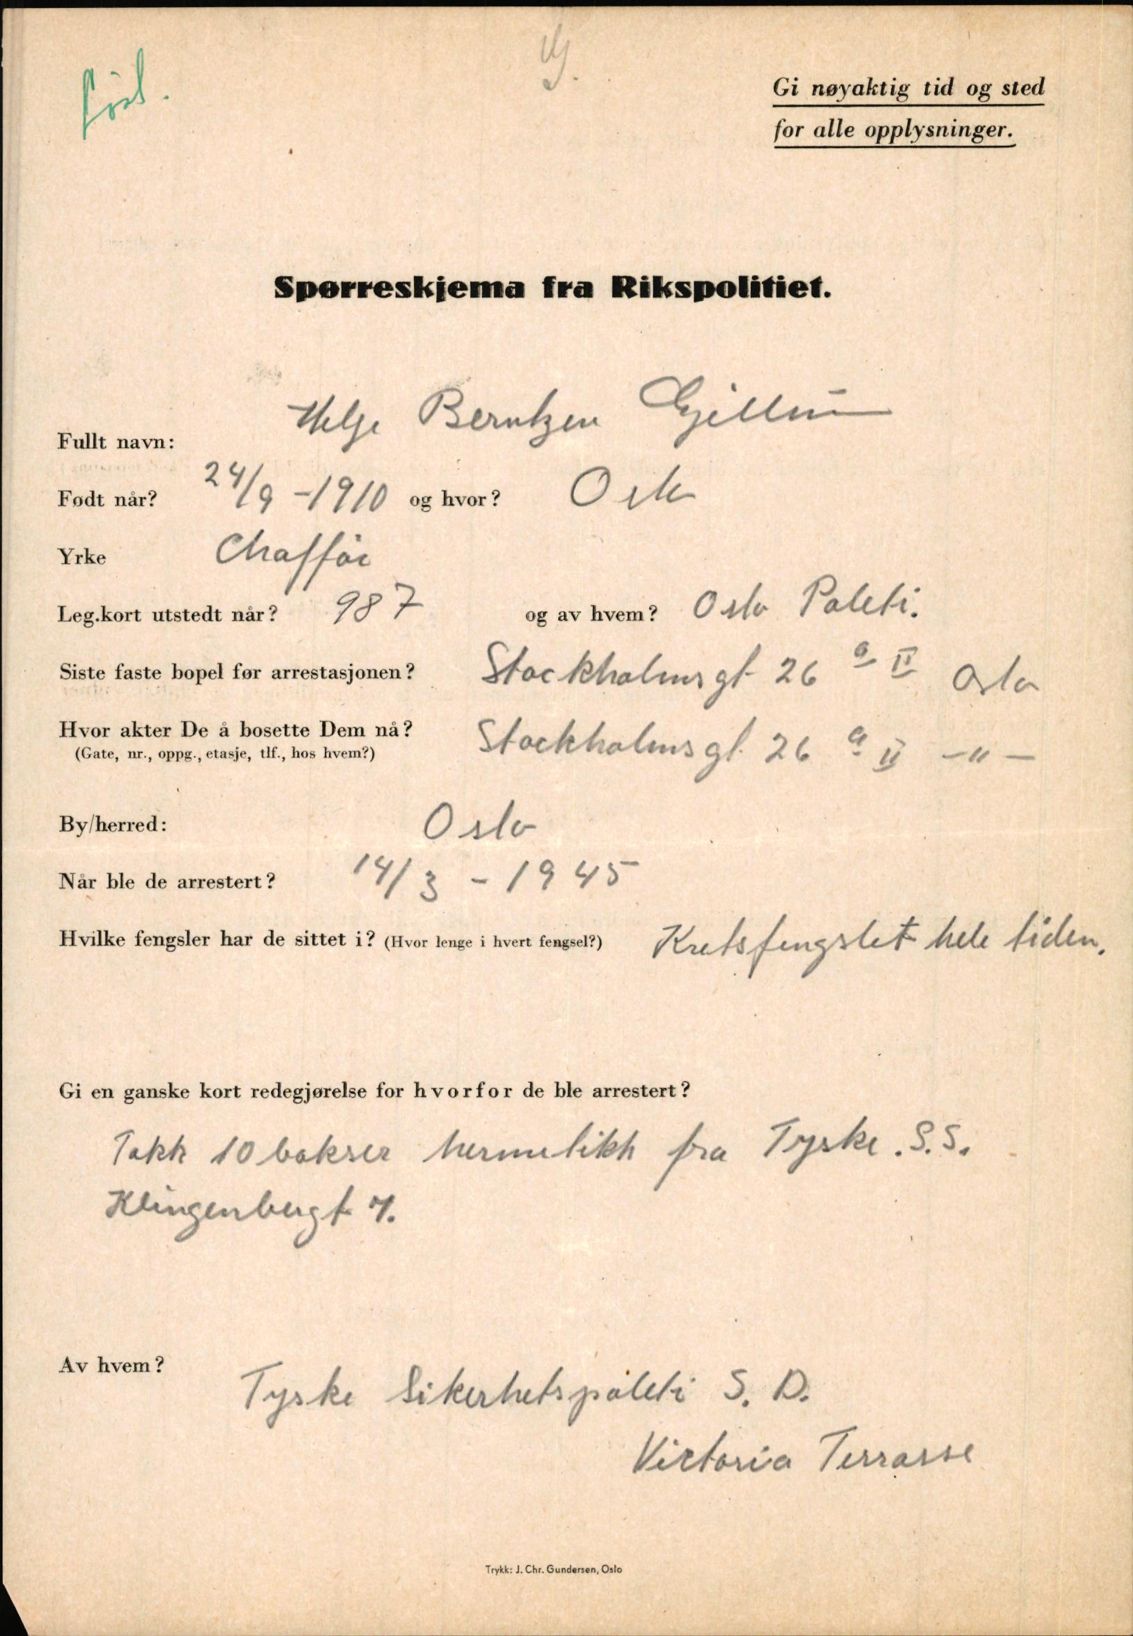 Gi nøyaktig tid og sted
for alle opplysninger.
Spørreskjema fra Rikspolitiet.
Fullt navn: Helge Berntzen Gjellum
Født når? 24/9 - 1910 og hvor? Oslo
Yrke Chaffør
Leg.kort utstedt når? 987 og av hvem? Oslo Politi.
Siste faste bopel før arrestasjonen? Stockholmsgt 26 a II Oslo
Hvor akter De å bosette Dem nå? Stockholmsgt. 26 a II -"-
(Gate, nr., oppg., etasje, tlf., hos hvem?)
By/herred: Oslo
Når ble de arrestert? 14/3 - 1945
Hvilke fengsler har de sittet i? (Hvor lenge i hvert fengsel?) Kretsfengslet hele tiden.
Gi en ganske kort redegjørelse for hvorfor de ble arrestert?
Tokk 10 bokser hermetikk fra Tyske. S.S.
Klingenbergt 7.
Av hvem? Tyske Sikerhetspoleti S. D.
Victoria Terrasse
Trykk: J. Chr. Gundersen, Oslo